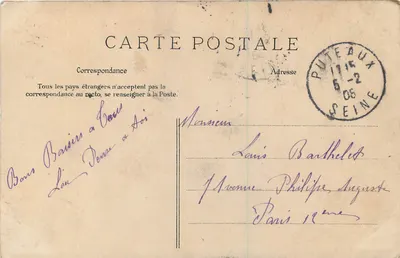 CARTE POSTALE
Correspondance
Tous les pays étrangers n'acceptent pas la
correspondance au recto, se renseigner à la Poste.
Adresse
PUTEAUX
17 15
6 -2
06
SEINE
Bons Baisers a Tous
Monsieur
Louis Barthelet
Avenue Philippe Auguste
Paris 12eme